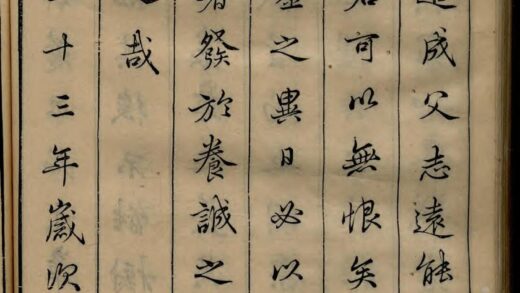 成父志遠能
君可以無恨矣
之異日必以
發於養誠之
哉
十三年歲次